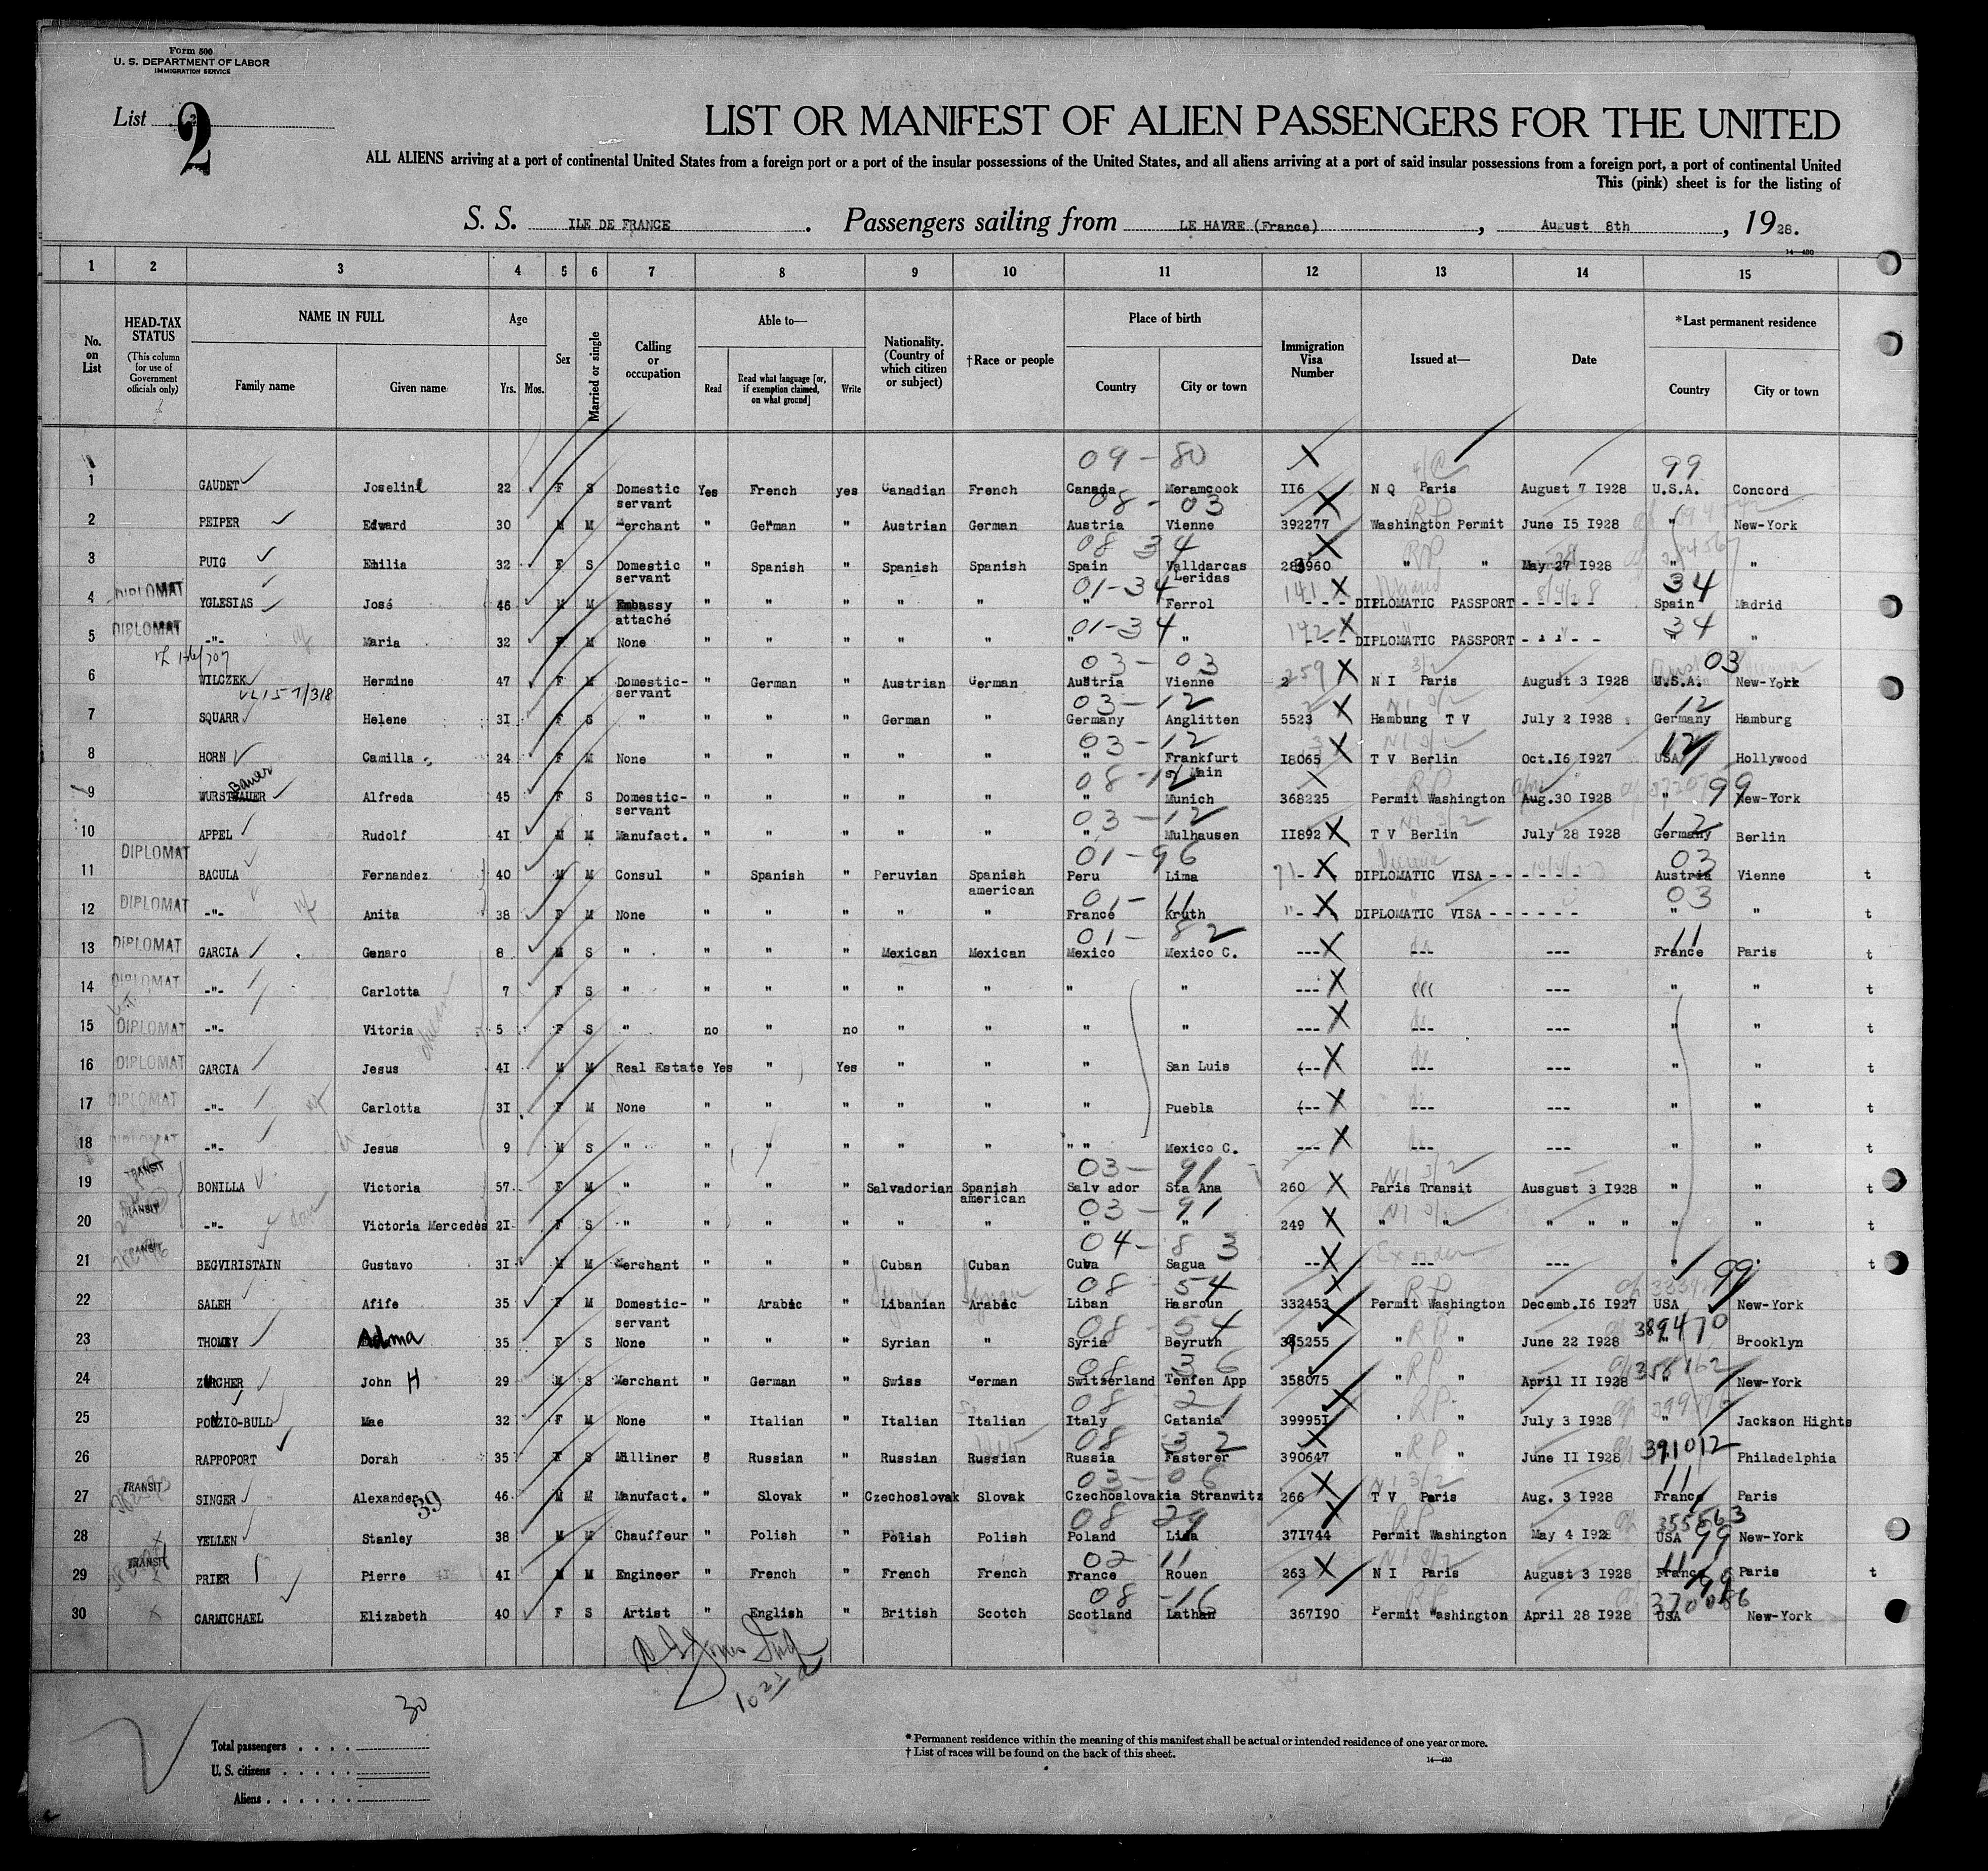 Form 500
U. S. DEPARTMENT OF LABOR
IMMIGRATION SERVICE
List 2
LIST OR MANIFEST OF ALIEN PASSENGERS FOR THE UNITED
ALL ALIENS arriving at a port of continental United States from a foreign port or a port of the insular possessions of the United States, and all aliens arriving at a port of said insular possessions from a foreign port, a port of continental United
This (pink) sheet is for the listing of
S. S. ILE DE FRANCE. Passengers sailing from LE HAVRE (France), August 8th, 1928.
14—430
1 2 3 4 5 6 7 8 9 10 11 12 13 14 15
No. on List
HEAD-TAX STATUS (This column for use of Government officials only)
NAME IN FULL
Family name
Given name
Age
Yrs. Mos.
Sex
Married or single
Calling or occupation
Able to—
Read
Read what language [or, if exemption claimed, on what ground]
Write
Nationality. (Country of which citizen or subject)
†Race or people
Place of birth
Country
City or town
Immigration Visa Number
Issued at—
Date
*Last permanent residence
Country
City or town
09-80 99
1 GAUDET Joseline 22 F S Domestic servant Yes French yes Canadian French Canada Meramcook II6 N Q Paris August 7 I928 U.S.A. Concord
08-03 RP
2 PEIPER Edward 30 M M Merchant " German " Austrian German Austria Vienne 392277 Washington Permit June I5 I928 " New-York
08 34 RP
3 PUIG Emilia 32 F S Domestic servant " Spanish " Spanish Spanish Spain Valldarcas Leridas 283960 " " May 27 I928 " "
01-34 34
4 DIPLOMAT YGLESIAS José 46 M M Embassy attaché " " " " " " Ferrol 141 --- DIPLOMATIC PASSPORT ----- 8/4/28 Spain Madrid
01-34 34
5 DIPLOMAT -"- Maria 32 F M None " " " " " " " 142 --- DIPLOMATIC PASSPORT ----- " "
03-03 3/2 03
6 WILCZEK Hermine 47 F M Domestic-servant " German " Austrian German Austria Vienne 259 N I Paris August 3 I928 U.S.A. New-York
03-12 NI 3/2 12
7 SQUARR Helene 3I F S " " " " German " Germany Anglitten 5523 Hambung T V July 2 I928 Germany Hamburg
03-12 NI 3/2 12
8 HORN Camilla 24 F M None " " " " " " Frankfurt s/ Main I8065 T V Berlin Oct.I6 I927 USA Hollywood
08-12 RP 99
9 WURSTBAUER Bauer Alfreda 45 F S Domestic-servant " " " " " " Munich 368225 Permit Washington Aug.30 I928 " New-York
03-12 NI 3/2 12
10 APPEL Rudolf 4I M M Manufact. " " " " " " Mulhausen II892 T V Berlin July 28 I928 Germany Berlin
01-96 03
11 DIPLOMAT BACULA Fernandez 40 M M Consul " Spanish " Peruvian Spanish american Peru Lima 71 - DIPLOMATIC VISA ------ Austria Vienne t
01-11 03
12 DIPLOMAT -"- Anita 38 F M None " " " " " France Kruth " -- DIPLOMATIC VISA ------ " " t
01-82 11
13 DIPLOMAT GARCIA Genaro 8 M S " " " " Mexican Mexican Mexico Mexico C. --- --- --- France Paris t
14 DIPLOMAT -"- Carlotta 7 F S " " " " " " " " --- --- --- " " t
15 DIPLOMAT -"- Vitoria 5 F S " no " no " " " " --- --- --- " " t
16 DIPLOMAT GARCIA Jesus 4I M M Real Estate Yes " Yes " " " San Luis --- --- --- " " t
17 DIPLOMAT -"- Carlotta 3I F M None " " " " " " Puebla --- --- --- " " t
18 DIPLOMAT -"- Jesus 9 M S " " " " " " " " Mexico C. --- --- --- " " t
03-91 NI 3/2
19 TRANSIT BONILLA Victoria 57 F M " " " " Salvadorian Spanish american Salv ador Sta Ana 260 Paris Transit Ausgust 3 I928 " " t
03-91 NI 3/2
20 TRANSIT -"- Victoria Mercedès 2I F S " " " " " " " " 249 " " " " " " " t
04-83 Ex order
21 TRANSIT BEGVIRISTAIN Gustavo 3I M M Merchant " " " Cuban Cuban Cuva Sagua --- --- --- " " t
08-54 RP 99
22 SALEH Afife 35 F M Domestic-servant " Arabic " Libanian Arabic Liban Hasroun 332453 Permit Washington Decemb.I6 I927 USA New-York
08-54 RP 389470
23 THOMEY Adma 35 F S None " " " Syrian " Syria Beyruth 395255 " " June 22 I928 " Brooklyn
08 36 RP 358162
24 ZURCHER John H 29 M S Merchant " German " Swiss German Switzerland Tenfen App 358075 " " April II I928 " New-York
08 21 RP
25 PONZIO-BULL Mae 32 F M None " Italian " Italian Italian Italy Catania 39995I " " July 3 I928 " Jackson Hights
08 32 RP 391012
26 RAPPOPORT Dorah 35 F S Milliner " Russian " Russian Russian Russia Fasterer 390647 " " June II I928 Philadelphia
03-06 NI 3/2 11
27 TRANSIT SINGER Alexander 39 46 M M Manufact. " Slovak " Czechoslovak Slovak Czechoslovakia Stranwitz 266 T V Paris Aug. 3 I928 France Paris
08 29 RP 355563 99
28 YELLEN Stanley 38 M M Chauffeur " Polish " Polish Polish Poland Lida 37I744 Permit Washington May 4 I928 USA New-York
02 11 NI 3/2 11
29 TRANSIT PRIER Pierre 4I M M Engineer " French " French French France Rouen 263 N I Paris August 3 I928 France Paris t
08-16 RP 99 370086
30 CARMICHAEL Elizabeth 40 F S Artist " English " British Scotch Scotland Lathan 367I90 Permit Washington April 28 I928 USA New-York
30
Total passengers . . . .
U. S. citizens . . . . .
Aliens . . . . . .
* Permanent residence within the meaning of this manifest shall be actual or intended residence of one year or more.
† List of races will be found on the back of this sheet.
14—430